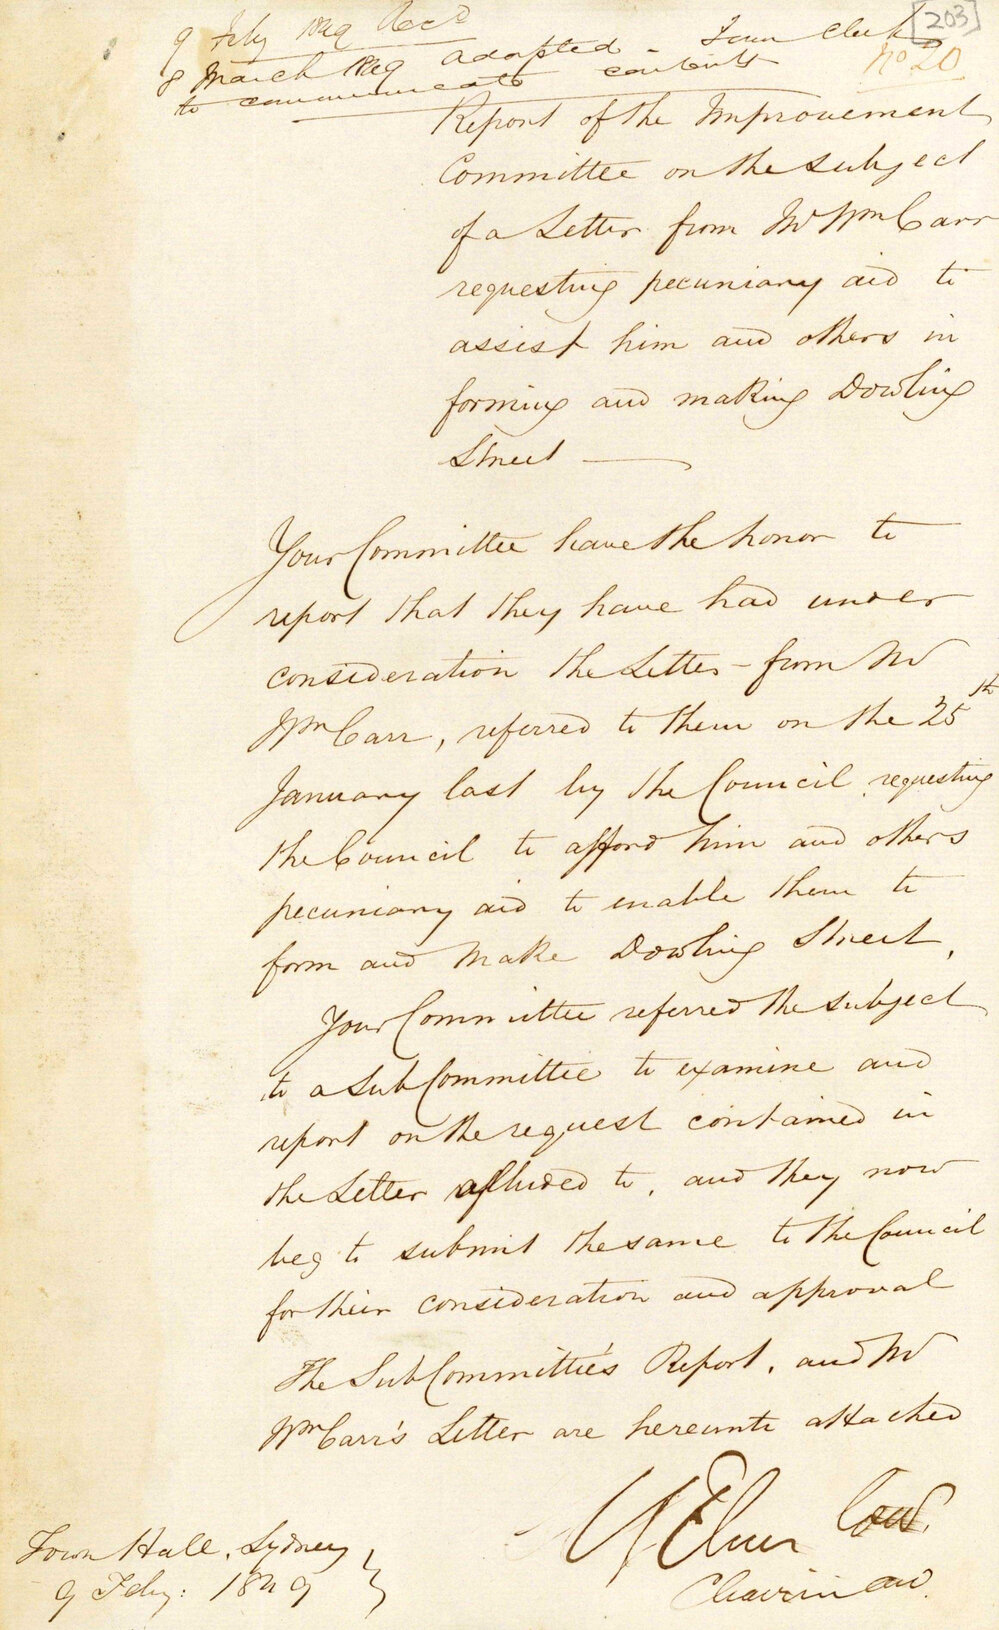 [203]
9 Feby 1849 Recd
8 March 1849 adopted - Town Clerk
to communicate contents
No 20
Report of the Improvement
Committee on the subject
of a Letter from Mr Wm Carr
requesting pecuniary aid to
assist him and others in
forming and making Dowling
Street
Your Committee have the honor to
report that they have had under
consideration the Letter - from Mr
Wm Carr, referred to them on the 25th
January last by the Council requesting
the Council to afford him and others
pecuniary aid to enable them to
form and make Dowling Street.
Your Committee referred the subject
to a Sub Committee to examine and
report on the request contained in
the Letter alluded to, and they now
beg to submit the same to the Council
for their consideration and approval
The Sub Committee's Report, and Mr
Wm Carr's Letter are hereunto attached
Chairman
Town Hall, Sydney
9 Feby: 1849